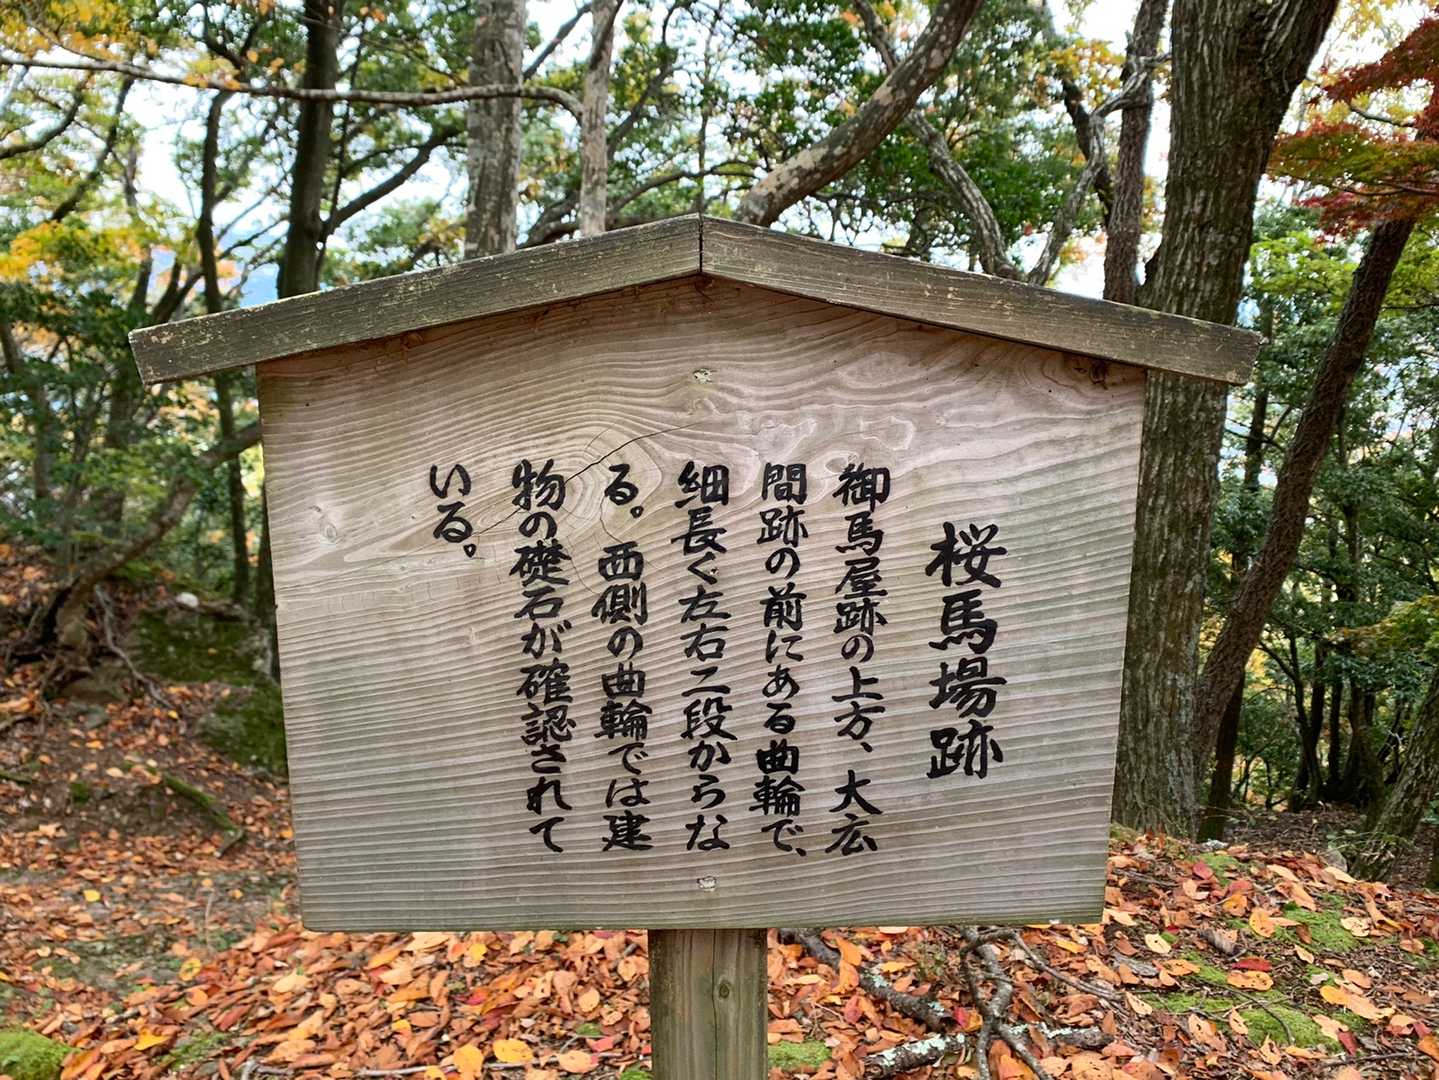 桜馬場跡
御馬屋跡の上方、大広
間跡の前にある曲輪で、
細長ぐ左右二段からな
る。西側の曲輪では建
物の礎石が確認されて
いる。